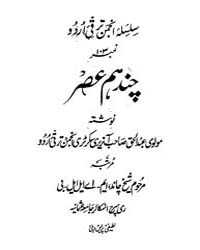 سلسلۂ انجمن ترقی اُردو
نمبر ۱۰۳
چند ہم عصر
نوشتہ
مولوی عبدالحق صاحب آنریری سکرٹری انجمن ترقی اُردو
مرتبہ
مرحوم شیخ چاند، ایم۔ اے ایل ایل۔ بی
ری سرچ اسکالر جامعہ عثمانیہ